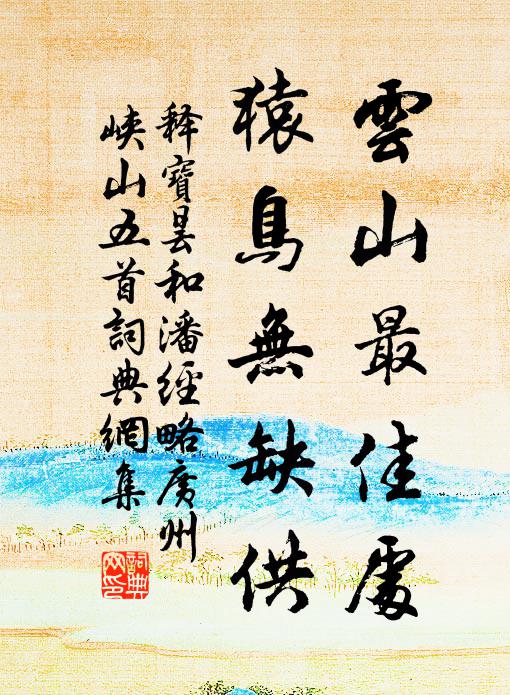 雲山最佳處
猿鳥無缺供
釋寶曇和潘經略廣州
峽山五首詞典網集
詞典